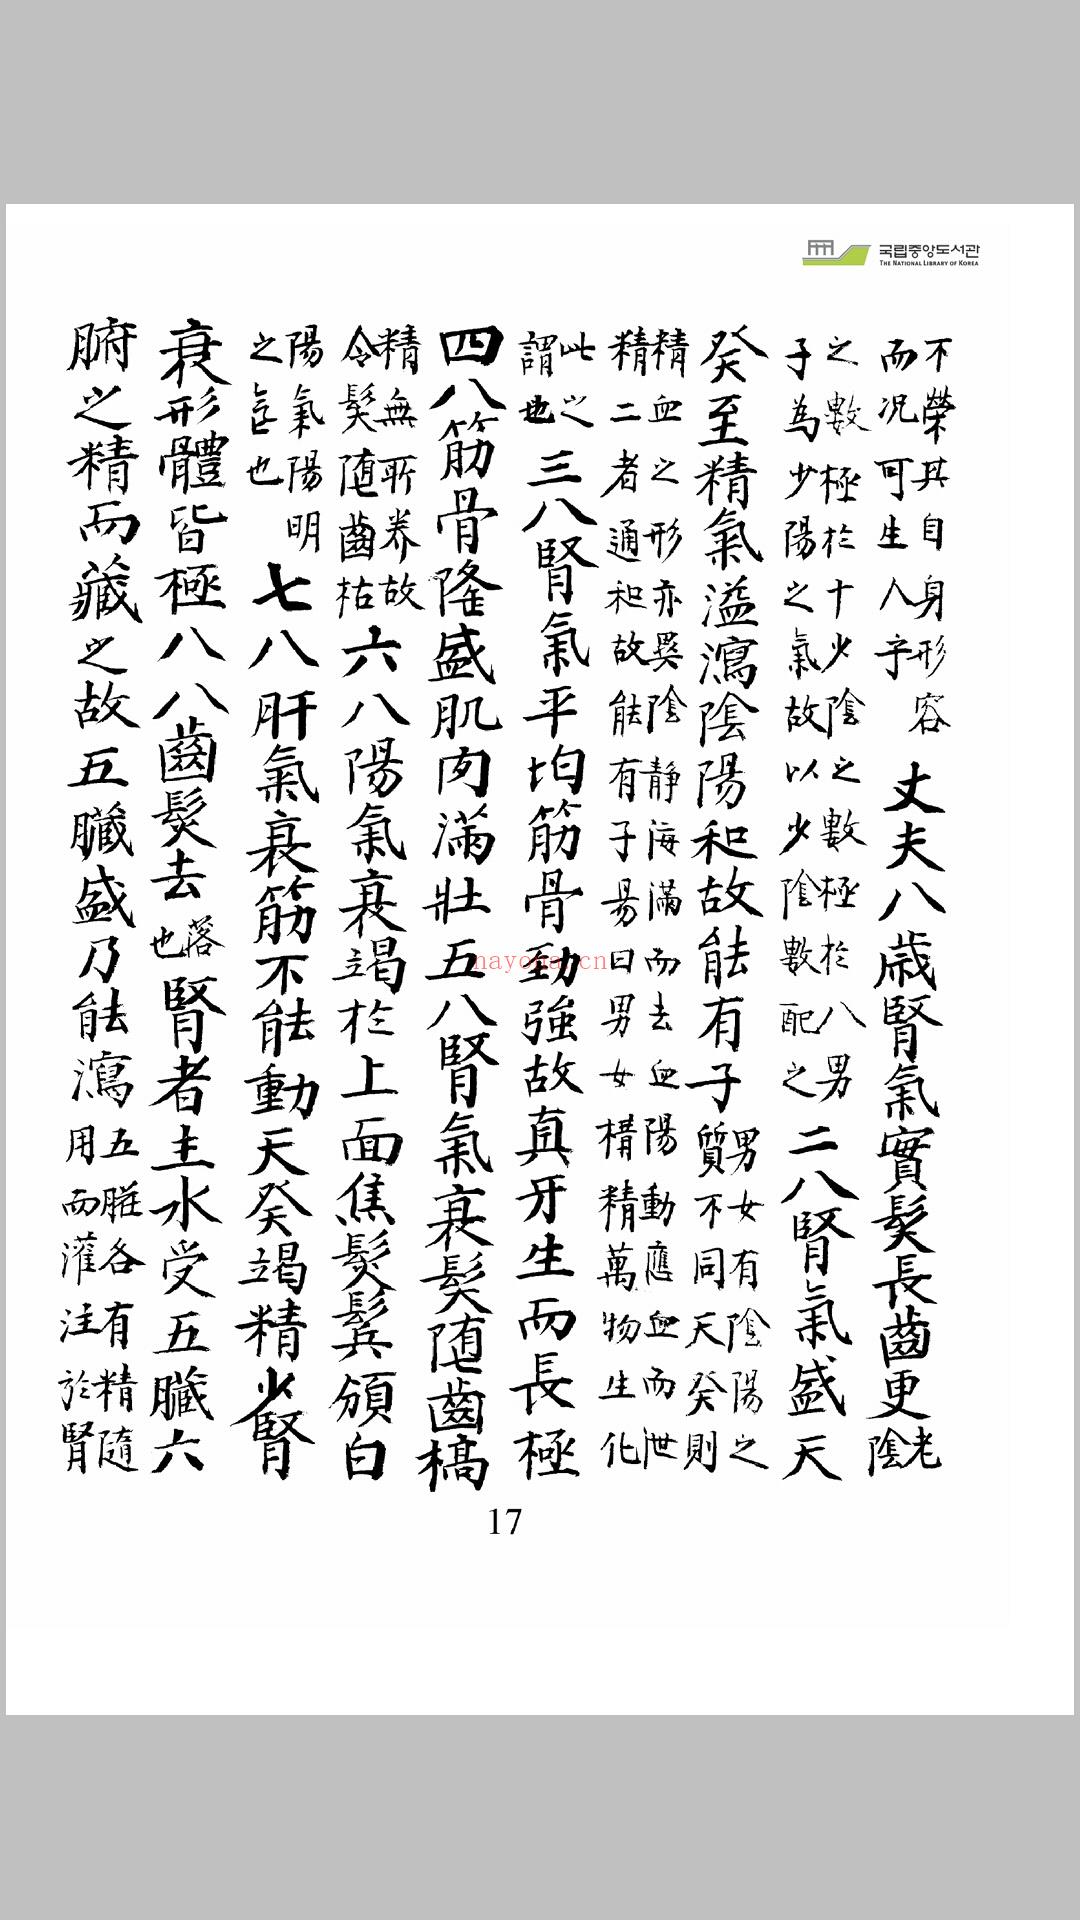 국립중앙도서관
THE NATIONAL LIBRARY OF KOREA
不榮其自身形容
而况可生人乎
丈夫八歲腎氣實髮長齒更
老
陰
之數極於十少陰之數極於八男
子為少陽之氣故以少陰數配之
二八腎氣盛天
癸至精氣溢瀉陰陽和故能有子
男女有陰陽之
質不同天癸則
精血之形亦異陰静海滿而去血陽動應血而泄
精二者通和故能有子易曰男女構精萬物生化
此之
謂也
三八腎氣平均筋骨勁強故真牙生而長極
四八筋骨隆盛肌肉滿壯五八腎氣衰髮随齒槁
精無所养故
令髮随齒枯
六八陽氣衰竭於上面焦髮鬂頒白
陽氣陽明
之也
七八肝氣衰筋不能動天癸竭精少腎
衰形體皆極八八齒髮去
落
也
腎者主水受五臟六
腑之精而藏之故五臟盛乃能瀉
五臟各有精隨
用而灌注於腎
17
nayona.cn